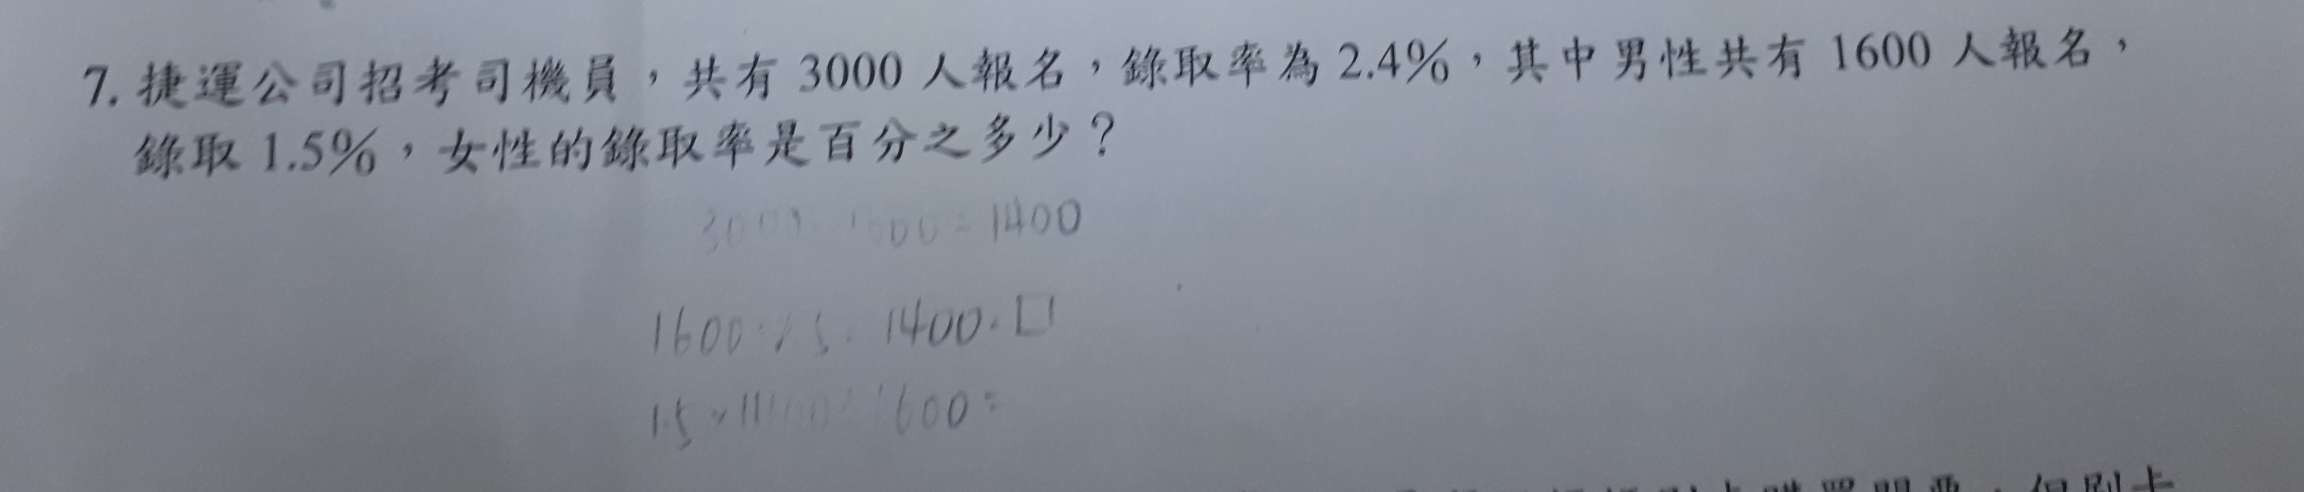 7. 捷運公司招考司機員，共有 3000 人報名，錄取率為 2.4%，其中男性共有 1600 人報名，
錄取 1.5%，女性的錄取率是百分之多少？
= 1400
1600 : 1.5 = 1400 : □
1.5 × 1400 ÷ 1600 =